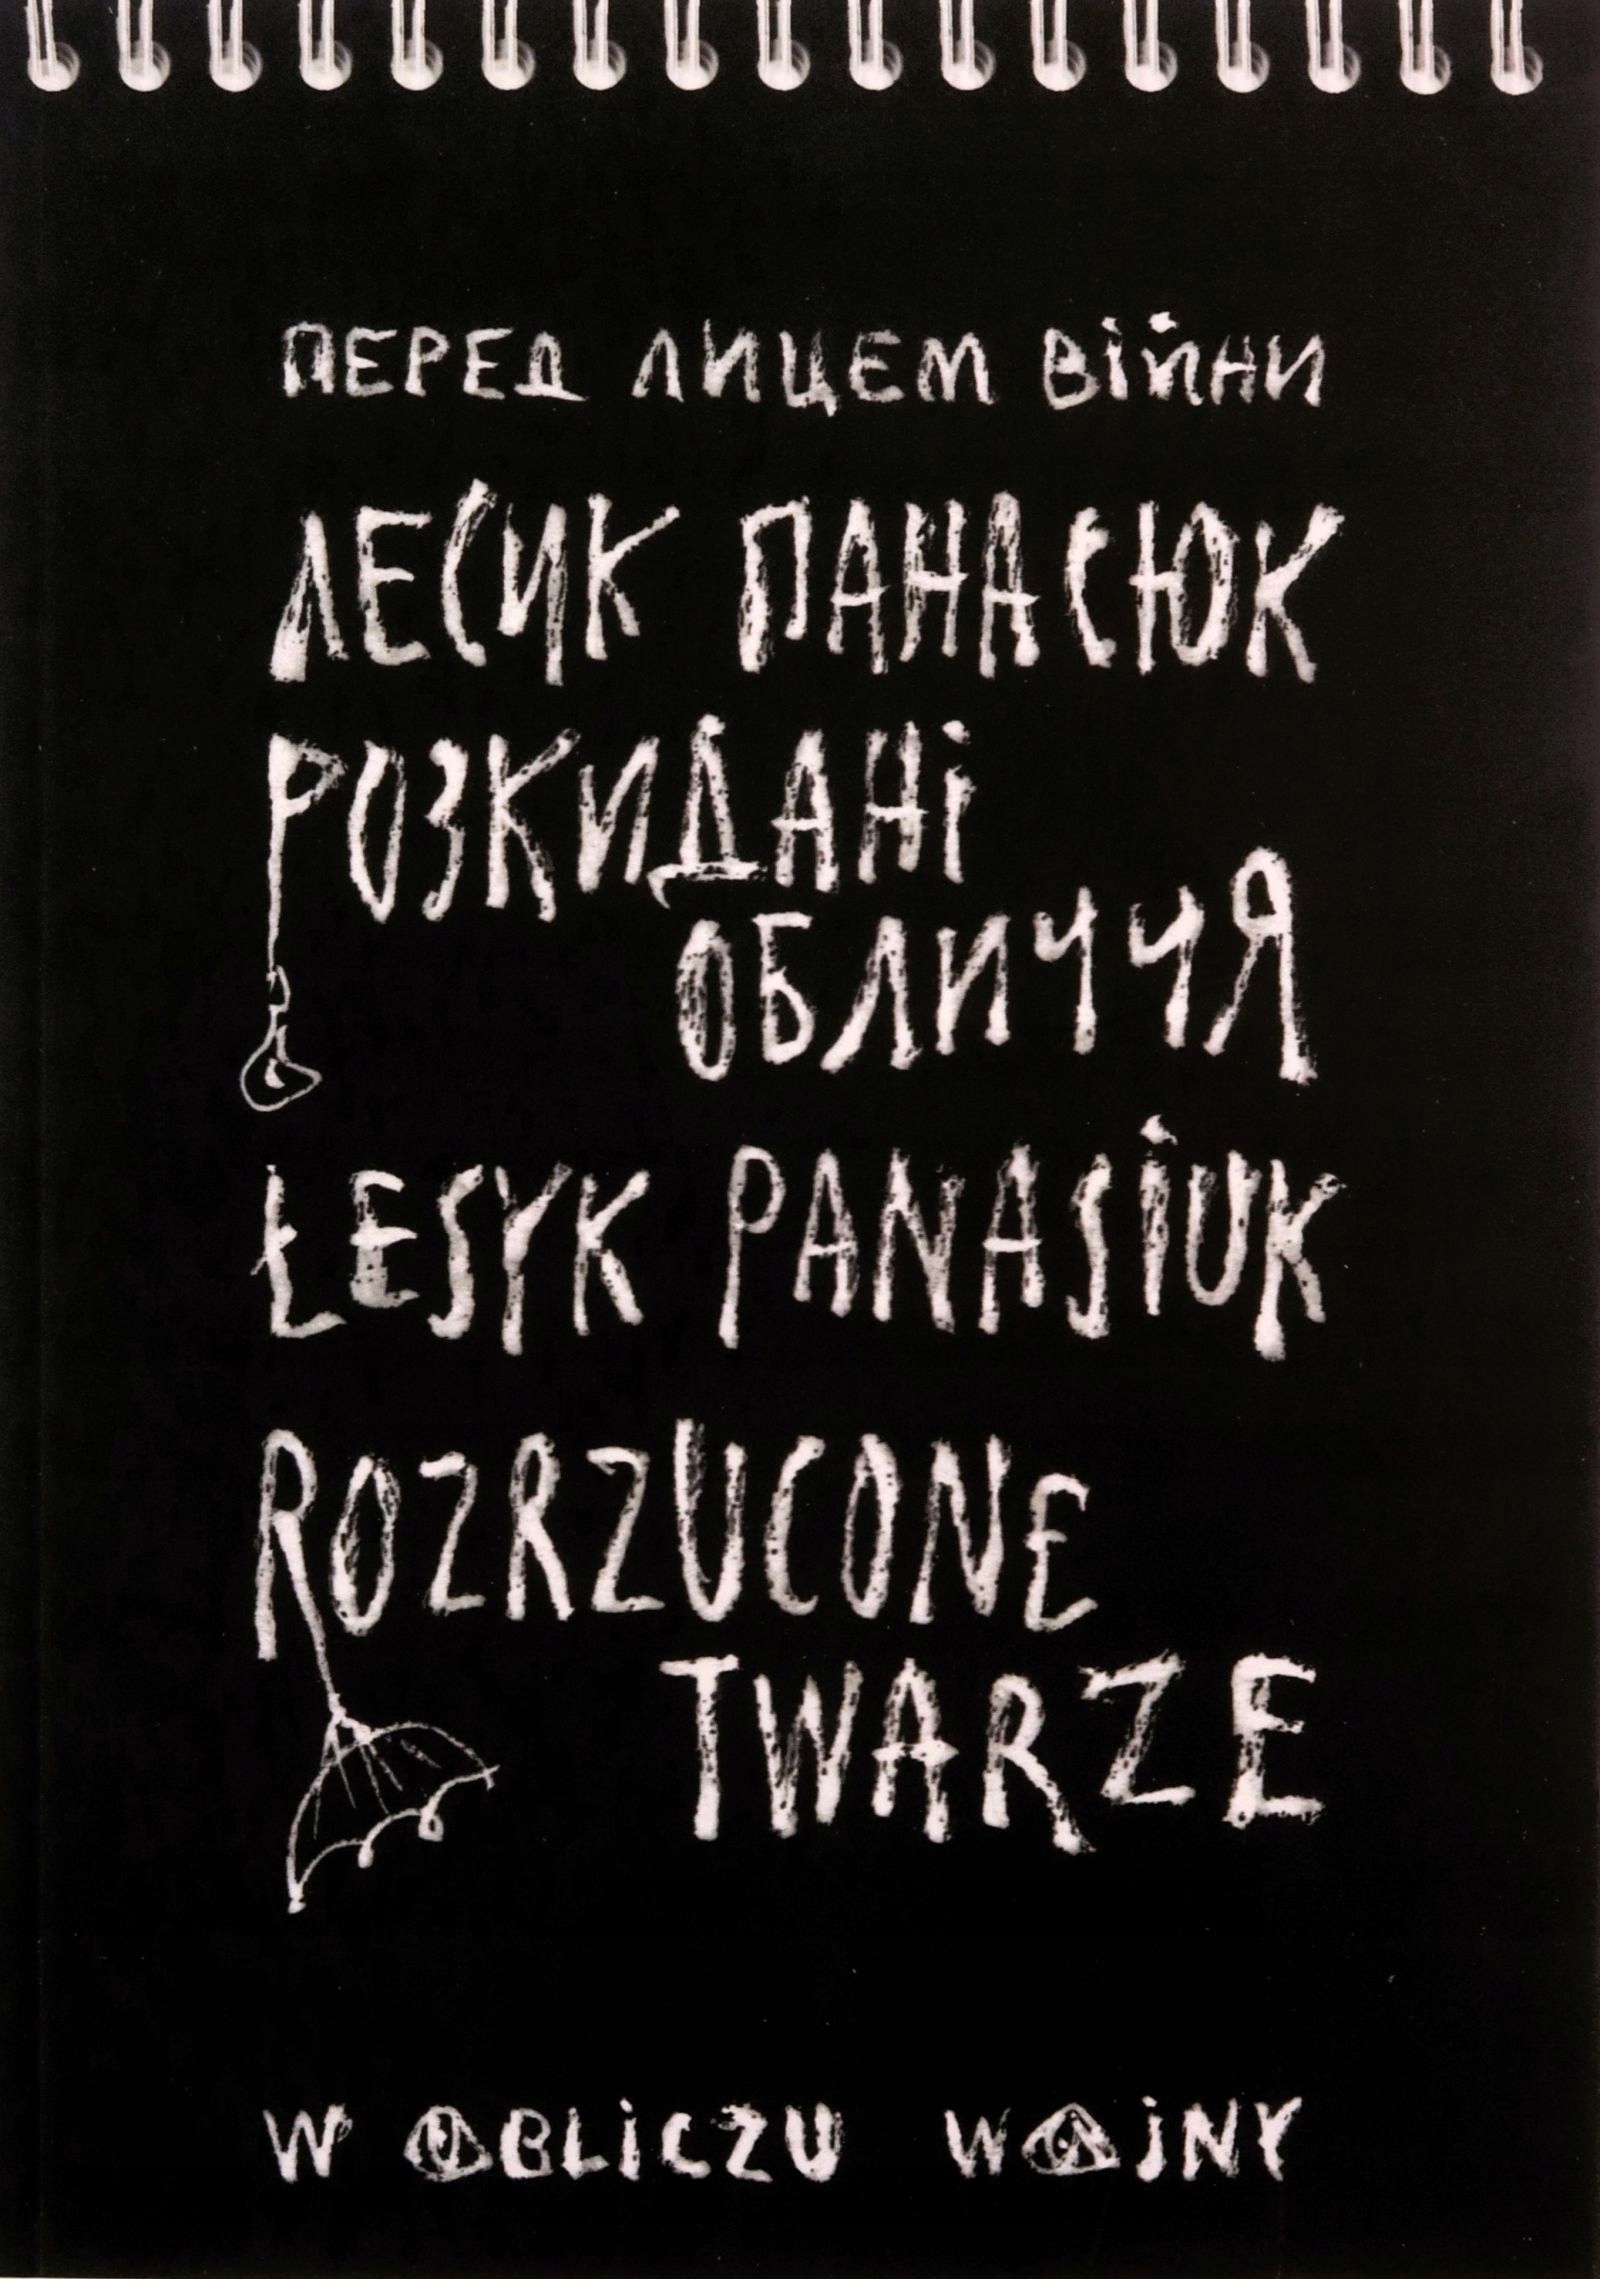 ПЕРЕД ЛИЦЕМ ВІЙНИ
ЛЕСИК ПАНАСЮК
РОЗКИДАНІ
ОБЛИЧЧЯ
ŁESYK PANASIUK
ROZRZUCONE
TWARZE
W OBLICZU WOJNY